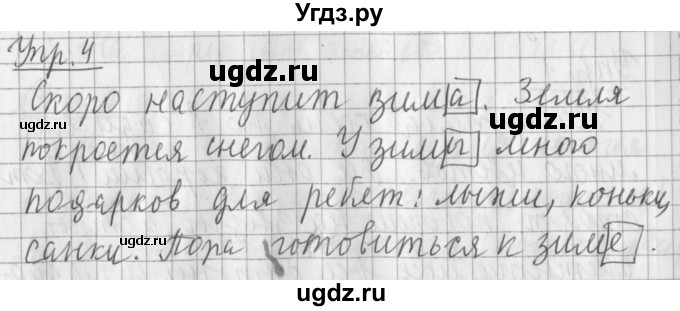 Угдз.ру
Упр. 4
ugdz.ru ugdz.ru
Скоро наступит зима. Земля
ugdz.ru ugdz.ru
покроется снегом. У зимы много
ugdz.ru
подарков для ребят: лыжи, коньки,
ugdz.ru ugdz.ru
санки. Пора готовиться к зиме.
ugdz.ru